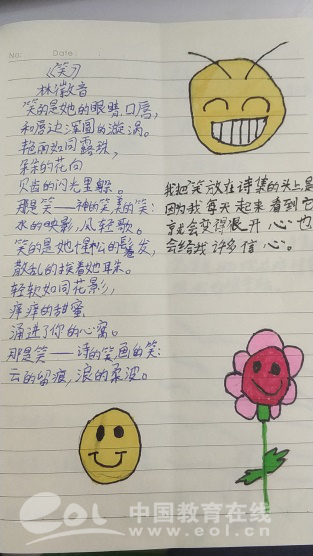 No.
Date:
《笑》
林徽音
笑的是她的眼睛,口唇,
和唇边浑圆的漩涡。
艳丽如同露珠,
朵朵的花向
贝齿的闪光里躲。
那是笑——神的笑,美的笑:
水的映影,风的轻歌。
笑的是她惺忪的鬈发,
散乱的挨着她耳朵。
轻软如同花影,
痒痒的甜蜜
涌进了你的心窝。
那是笑——诗的笑,画的笑:
云的留痕,浪的柔波。
我把笑放在诗集的头上,是
因为我每天起来看到它
就会变得很开心也
会给我许多信心。
eol 中国教育在线
www.eol.cn